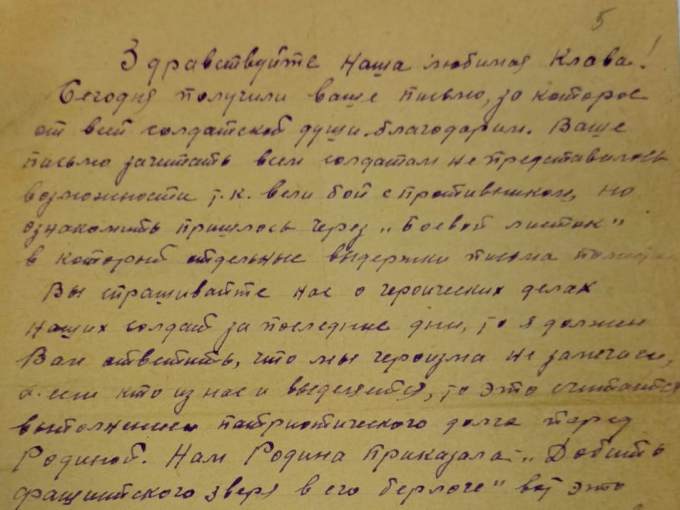 5
Здравствуйте наша любимая Клава!
Сегодня получили ваше письмо, за которое
от всей солдатской души благодарим. Ваше
письмо зачитать всем солдатам не представилось
возможности т.к. вели бой с противником, но
ознакомить пришлось через „Боевой листок"
в который отдельные выдержки письма
Вы спрашивайте нас о героических делах
наших солдат за последние дни, то я должен
Вам ответить, что мы героизма не замечаем,
а если кто из нас и выделяется, то это считается
выполнением патриотического долга перед
Родиной. Нам Родина приказала: „Добить
фашистского зверя в его берлоге" вот это